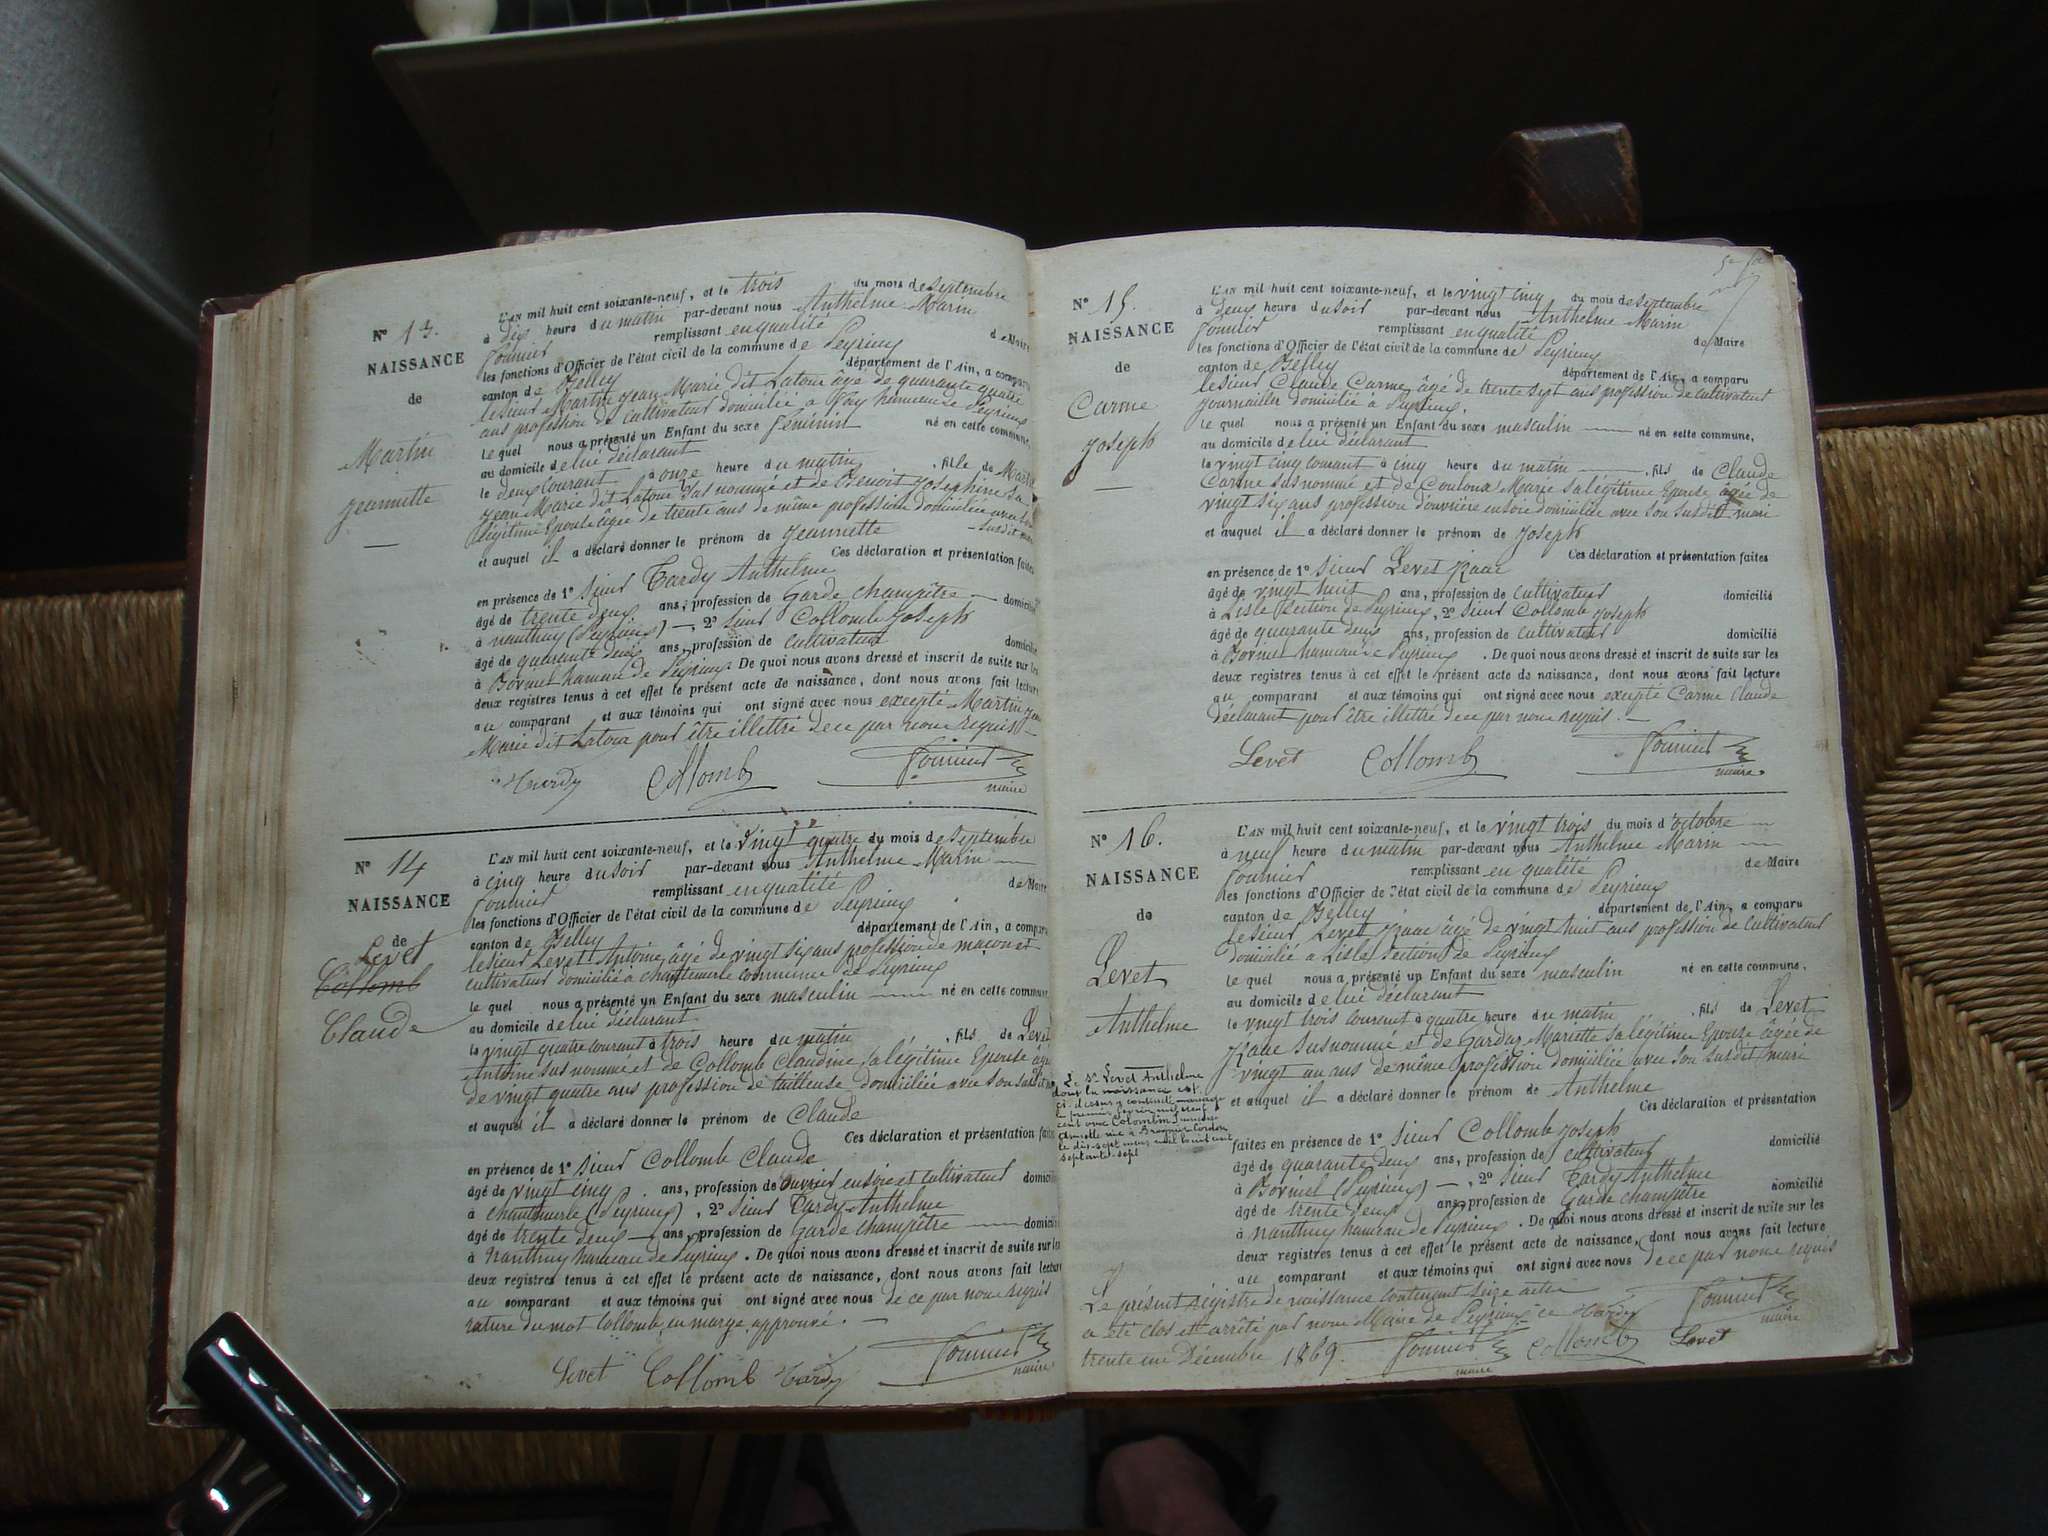 N° 13.
NAISSANCE
de
Martin
Jeannette
L'AN mil huit cent soixante-neuf, et le trois du mois de septembre
à dix heure du matin par-devant nous Anthelme Marin
fournier remplissant en qualité de Maire
les fonctions d'Officier de l'état civil de la commune de Peyrieux
canton de Belley département de l'Ain, a comparu
le sieur Martin Jean Marie dit Latour âgé de quarante quatre
ans profession de cultivateur domicilié à hameau de Peyrieux
le quel nous a présenté un Enfant du sexe féminin né en cette commune,
au domicile de lui déclarant
le deux courant à onze heure du matin, fille de Martin
Jean Marie dit Latour susnommé et de Benoit Joséphine sa
légitime Epouse âgée de trente ans de même profession domiciliée avec son
susdit mari
et auquel il a déclaré donner le prénom de Jeannette
Ces déclaration et présentation faites
en présence de 1° sieur Tardy Anthelme
âgé de trente deux ans, profession de Garde champêtre domicilié
à nanthuy (Peyrieux) —, 2° sieur Collomb Joseph
âgé de quarante deux ans, profession de cultivateur domicilié
à Bovinel hameau de Peyrieux De quoi nous avons dressé et inscrit de suite sur les
deux registres tenus à cet effet le présent acte de naissance, dont nous avons fait lecture
au comparant et aux témoins qui ont signé avec nous excepté Martin Jean
Marie dit Latour pour être illettré de ce par nous requis —
Tardy Collomb fournier
maire
N° 14
NAISSANCE
de
Levet
Collomb
Claude
L'AN mil huit cent soixante-neuf, et le vingt quatre du mois de septembre
à cinq heure du soir par-devant nous Anthelme Marin
fournier remplissant en qualité de Maire
les fonctions d'Officier de l'état civil de la commune de Peyrieux
canton de Belley département de l'Ain, a comparu
le sieur Levet Antoine âgé de vingt six ans profession de maçon et
cultivateur domicilié à chantemerle commune de Peyrieux
le quel nous a présenté un Enfant du sexe masculin né en cette commune,
au domicile de lui déclarant
le vingt quatre courant à trois heure du matin, fils de Levet
Antoine susnommé et de Collomb Claudine sa légitime Epouse âgée
de vingt quatre ans profession de tailleuse domiciliée avec son susdit
et auquel il a déclaré donner le prénom de Claude
Ces déclaration et présentation faites
en présence de 1° sieur Collomb Claude
âgé de vingt cinq ans, profession de ouvrier en soie et cultivateur domicilié
à chantemerle (Peyrieux), 2° sieur Tardy Anthelme
âgé de trente deux — ans, profession de Garde champêtre domicilié
à nanthuy hameau de Peyrieux. De quoi nous avons dressé et inscrit de suite sur les
deux registres tenus à cet effet le présent acte de naissance, dont nous avons fait lecture
au comparant et aux témoins qui ont signé avec nous de ce par nous requis
rature du mot Collomb en marge approuvé. —
Levet Collomb Tardy fournier
maire
N° 15.
NAISSANCE
de
Carme
Joseph
L'AN mil huit cent soixante-neuf, et le vingt cinq du mois de septembre
à deux heure du soir par-devant nous Anthelme Marin
fournier remplissant en qualité de Maire
les fonctions d'Officier de l'état civil de la commune de Peyrieux
canton de Belley département de l'Ain, a comparu
le sieur Claude Carme, âgé de trente sept ans profession de cultivateur
journalier domicilié à Peyrieux,
le quel nous a présenté un Enfant du sexe masculin né en cette commune,
au domicile de lui déclarant
le vingt cinq courant à cinq heure du matin, fils de Claude
Carme susnommé et de Couloux Marie sa légitime Epouse âgée de
vingt six ans profession d'ouvrière en soie domiciliée avec son susdit mari
et auquel il a déclaré donner le prénom de Joseph
Ces déclaration et présentation faites
en présence de 1° sieur Levet Isaac
âgé de vingt huit ans, profession de cultivateur domicilié
à Lisle Section de Peyrieux, 2° sieur Collomb Joseph
âgé de quarante deux ans, profession de cultivateur domicilié
à Bovinel hameau de Peyrieux. De quoi nous avons dressé et inscrit de suite sur les
deux registres tenus à cet effet le présent acte de naissance, dont nous avons fait lecture
au comparant et aux témoins qui ont signé avec nous excepté Carme Claude
déclarant pour être illettré de ce par nous requis. —
Levet Collomb fournier
maire
N° 16.
NAISSANCE
de
Levet
Anthelme
Le Sr Levet Anthelme
dont la naissance est
ci-dessus a contracté mariage
le premier février mil neuf
cent avec Colombin
Armelle née à Brégnier Cordon
le dix sept mars mil huit cent
septante sept
L'AN mil huit cent soixante-neuf, et le vingt trois du mois d'octobre
à neuf heure du matin par-devant nous Anthelme Marin
fournier remplissant en qualité de Maire
les fonctions d'Officier de l'état civil de la commune de Peyrieux
canton de Belley département de l'Ain, a comparu
le sieur Levet Isaac âgé de vingt huit ans profession de cultivateur
domicilié à Lisle section de Peyrieux
le quel nous a présenté un Enfant du sexe masculin né en cette commune,
au domicile de lui déclarant
le vingt trois courant à quatre heure du matin, fils de Levet
Isaac susnommé et de Garduz Mariette sa légitime Epouse âgée de
vingt un ans de même profession domiciliée avec son susdit mari
et auquel il a déclaré donner le prénom de Anthelme
Ces déclaration et présentation
faites en présence de 1° sieur Collomb Joseph
âgé de quarante deux ans, profession de cultivateur domicilié
à Bovinel (Peyrieux) —, 2° sieur Tardy Anthelme
âgé de trente deux ans, profession de Garde champêtre domicilié
à nanthuy hameau de Peyrieux. De quoi nous avons dressé et inscrit de suite sur les
deux registres tenus à cet effet le présent acte de naissance, dont nous avons fait lecture
au comparant et aux témoins qui ont signé avec nous de ce par nous requis
Le présent registre de naissance contenant seize actes
a été clos et arrêté par nous Maire de Peyrieux ce
trente un Décembre 1869. fournier
maire
Tardy fournier
maire
Collomb Levet